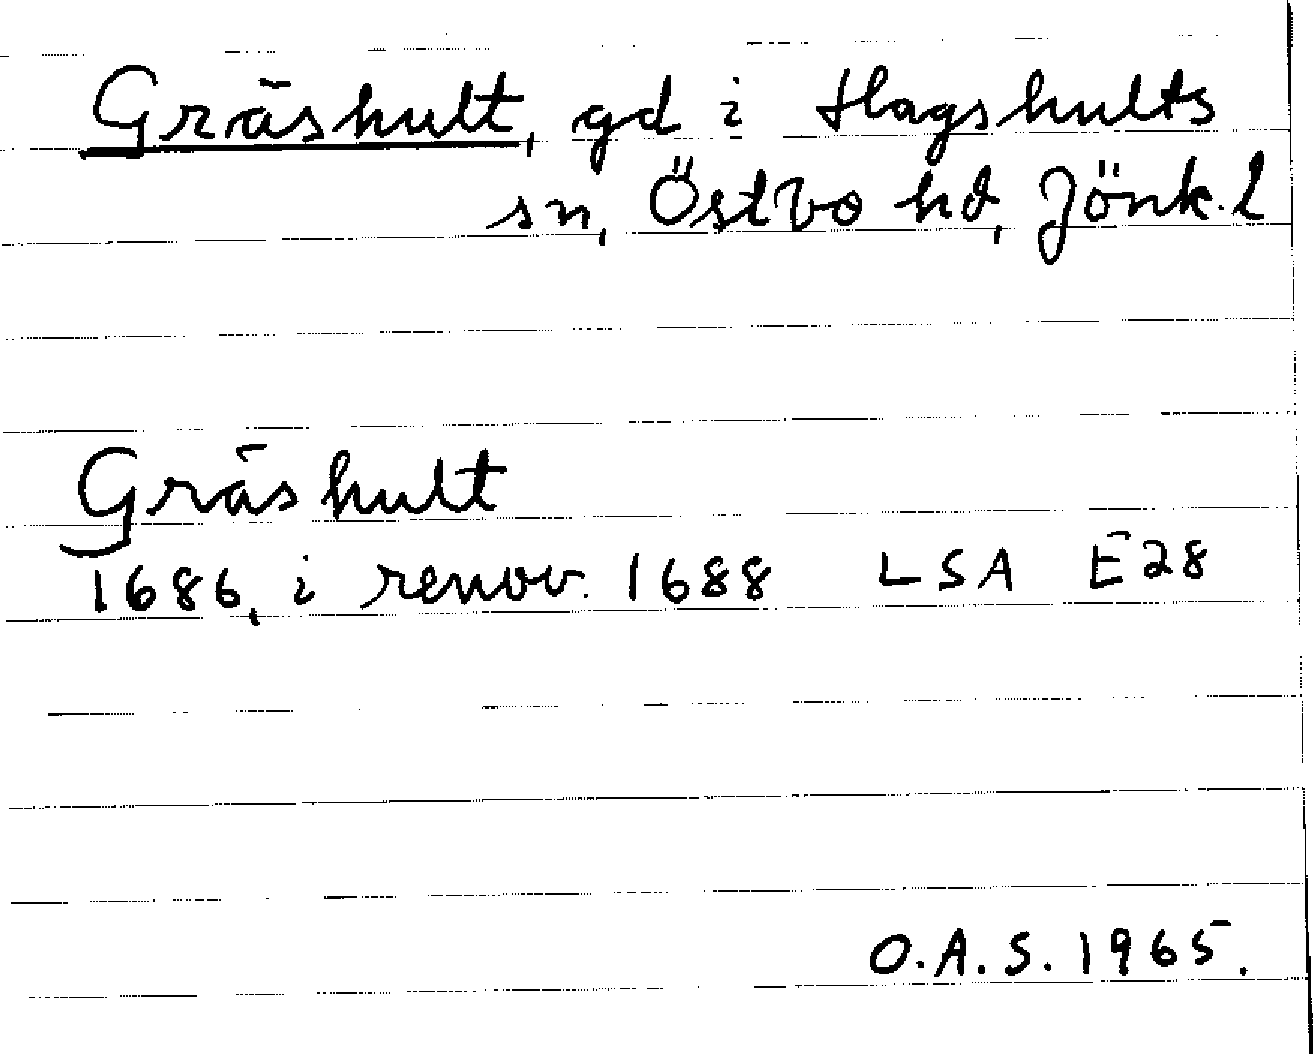 Gräshult, gd i Hagshults
sn, Östbo hd, Jönk. l
Gräshult
1686, i renov. 1688 LSA E28
O.A.S. 1965.